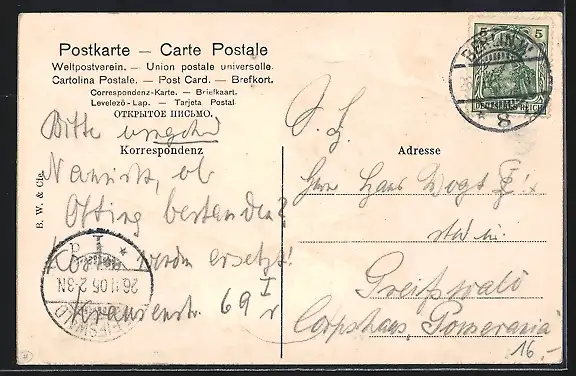 Postkarte — Carte Postale
Weltpostverein. — Union postale universelle.
Cartolina Postale. — Post Card. — Brefkort.
Correspondenz-Karte. — Briefkaart.
Levelező-Lap. — Tarjeta Postal.
ОТКРЫТОЕ ПИСЬМО.
Korrespondenz
Bitte umgehend
Nachricht, ob
bestanden?
Kosten werden ersetzt!
Krausenstr. 69 I r
B. W. & Cie.
26.11.06.2-3N
5 5
DEUTSCHES REICH
BERLIN W
* 8
S. L.
Adresse
Herrn Hans Vogt
Greifswald
Corpshaus „Pomerania"
16.-